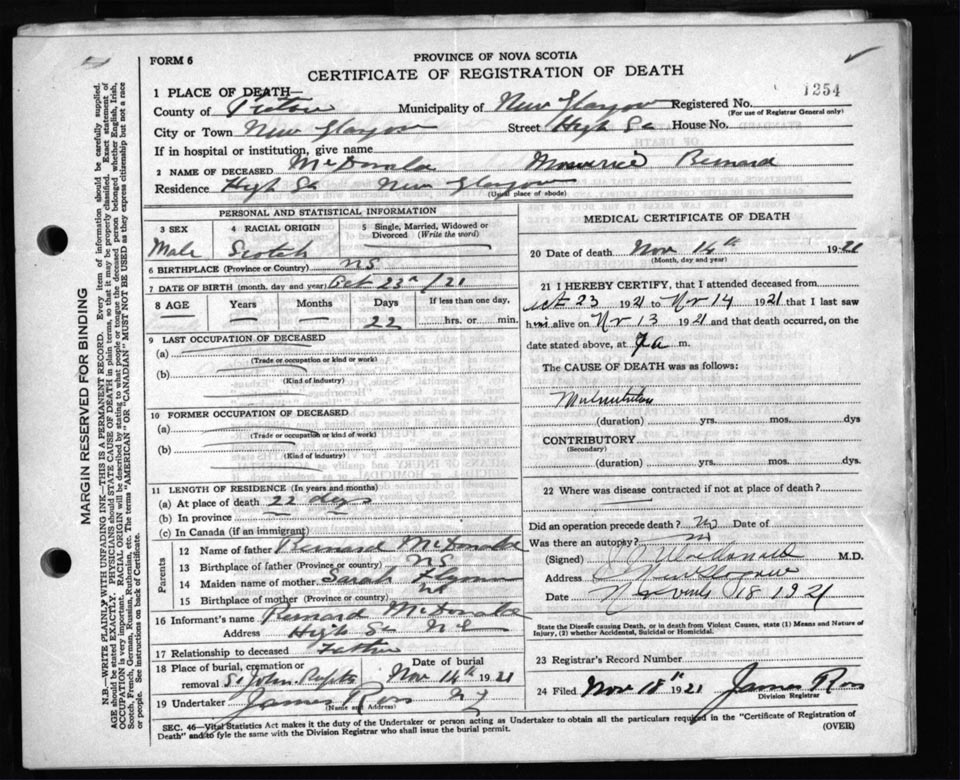 FORM 6
PROVINCE OF NOVA SCOTIA
CERTIFICATE OF REGISTRATION OF DEATH
1254
1 PLACE OF DEATH—
County of Pictou Municipality of New Glasgow Registered No.
(For use of Registrar General only)
City or Town New Glasgow Street High St House No.
If in hospital or institution, give name
2 NAME OF DECEASED McDonald Bernard
Residence High St New Glasgow
(Usual place of abode)
PERSONAL AND STATISTICAL INFORMATION
3 SEX
Male
4 RACIAL ORIGIN
Scotch
5 Single, Married, Widowed or Divorced (Write the word)
6 BIRTHPLACE (Province or Country) NS
7 DATE OF BIRTH (month, day and year) Oct 23 /21
8 AGE Years Months Days If less than one day,
22 hrs. or min.
9 LAST OCCUPATION OF DECEASED
(a)
(Trade or occupation or kind of work)
(b)
(Kind of industry)
10 FORMER OCCUPATION OF DECEASED
(a)
(Trade or occupation or kind of work)
(b)
(Kind of industry)
11 LENGTH OF RESIDENCE (In years and months)
(a) At place of death 22 days
(b) In province
(c) In Canada (if an immigrant)
Parents
12 Name of father Bernard McDonald
13 Birthplace of father (Province or country) NS
14 Maiden name of mother Sarah Flynn
15 Birthplace of mother (Province or country) NS
16 Informant's name Bernard McDonald
Address High St N G
17 Relationship to deceased Father
18 Place of burial, cremation or removal St John Date of burial Nov 14th 1921
19 Undertaker James Ross N G
(Name and Address)
MEDICAL CERTIFICATE OF DEATH
20 Date of death Nov 14th 1921
(Month, day and year)
21 I HEREBY CERTIFY, that I attended deceased from
Oct 23 1921 to Nov 14 1921 that I last saw
him alive on Nov 13 1921 and that death occurred, on the
date stated above, at a m.
The CAUSE OF DEATH was as follows:
Malnutrition
(duration) yrs. mos. dys
CONTRIBUTORY
(Secondary)
(duration) yrs. mos. dys.
22 Where was disease contracted if not at place of death?
Did an operation precede death? No Date of
Was there an autopsy? no
(Signed) MacDonald M.D.
Address New Glasgow
Date November 18 1921
State the Disease causing Death, or in death from Violent Causes, state (1) Means and Nature of Injury, (2) whether Accidental, Suicidal or Homicidal.
23 Registrar's Record Number
24 Filed Nov 18th 1921 James Ross
Division Registrar
SEC. 46—Vital Statistics Act makes it the duty of the Undertaker or person acting as Undertaker to obtain all the particulars required in the "Certificate of Registration of
Death" and to fyle the same with the Division Registrar who shall issue the burial permit.
(OVER)
MARGIN RESERVED FOR BINDING
N.B.—WRITE PLAINLY WITH UNFADING INK—THIS IS A PERMANENT RECORD. Every item of information should be carefully supplied.
AGE should be stated EXACTLY. PHYSICIANS should STATE CAUSE OF DEATH in plain terms, so that it may be properly classified. Exact statement of
OCCUPATION is very important. RACIAL ORIGIN will be described by stating to what people or tongue the deceased person belonged whether English, Irish,
Scotch, French, German, Russian, Ruthenian, etc. The terms "AMERICAN" OR "CANADIAN" MUST NOT BE USED as they express citizenship but not a race
or people. See instructions on back of Certificate.